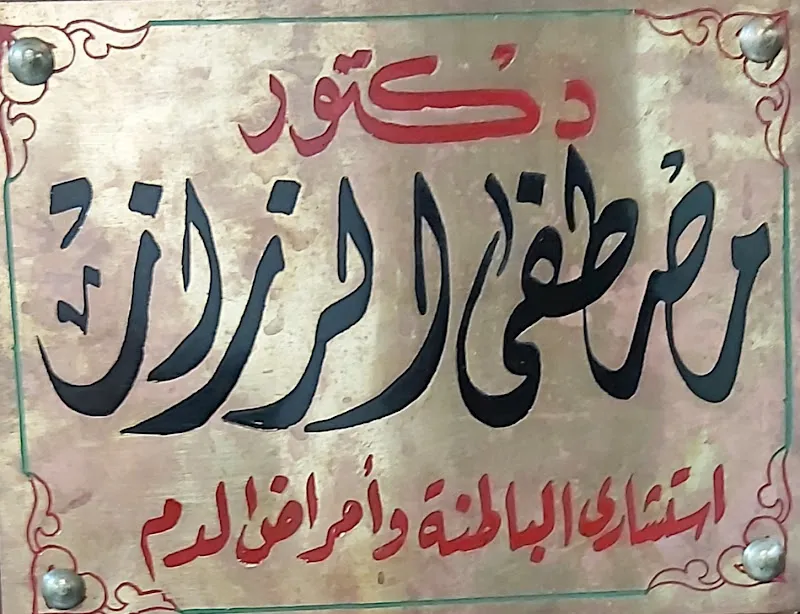 دكتور
مصطفى الرزاز
استشارى الباطنة وأمراض الدم